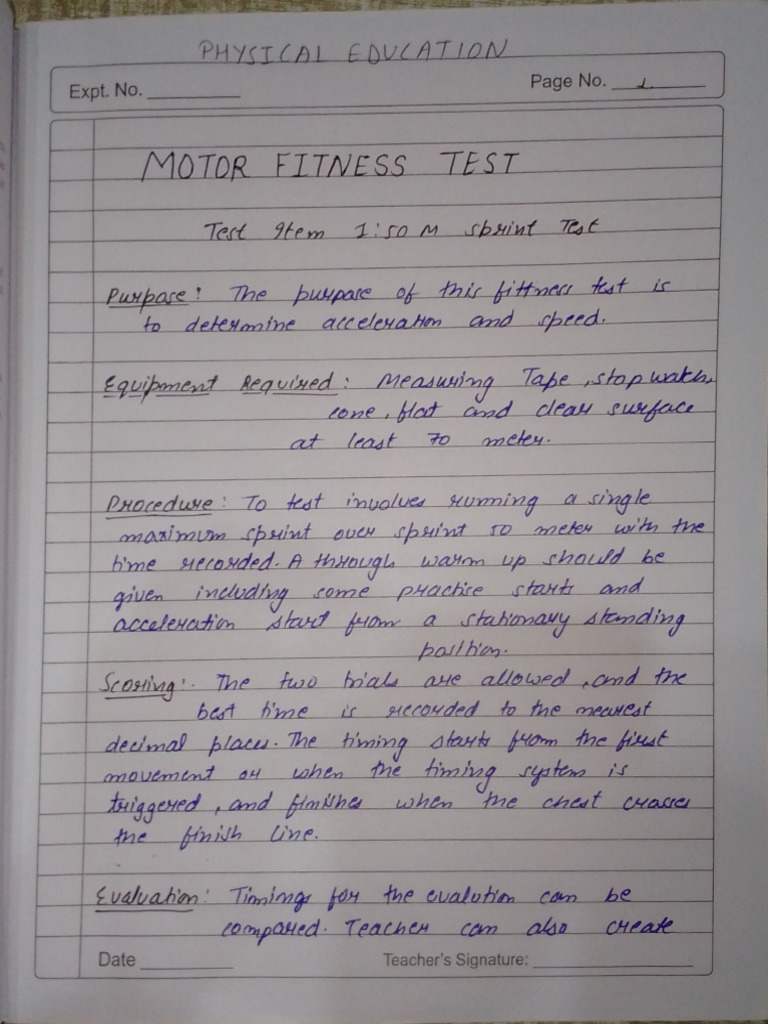 PHYSICAL EDUCATION
Expt. No. Page No. 1.
MOTOR FITNESS TEST
Test Item 1:50 M Sprint Test
Purpose: The purpose of this fittness test is
to determine acceleration and speed.
Equipment Required: Measuring Tape, stop watch,
cone, flat and clear surface
at least 70 meter.
Procedure: To test involves running a single
maximum sprint over sprint 50 meter with the
time recorded. A through warm up should be
given including some practise starts and
acceleration start from a stationary standing
position.
Scoring:. The two trials are allowed, and the
best time is recorded to the nearest
decimal places. The timing starts from the first
movement or when the timing system is
triggered, and finishes when the chest crosses
the finish line.
Evaluation: Timings for the evalution can be
compared. Teacher can also create
Date Teacher's Signature: